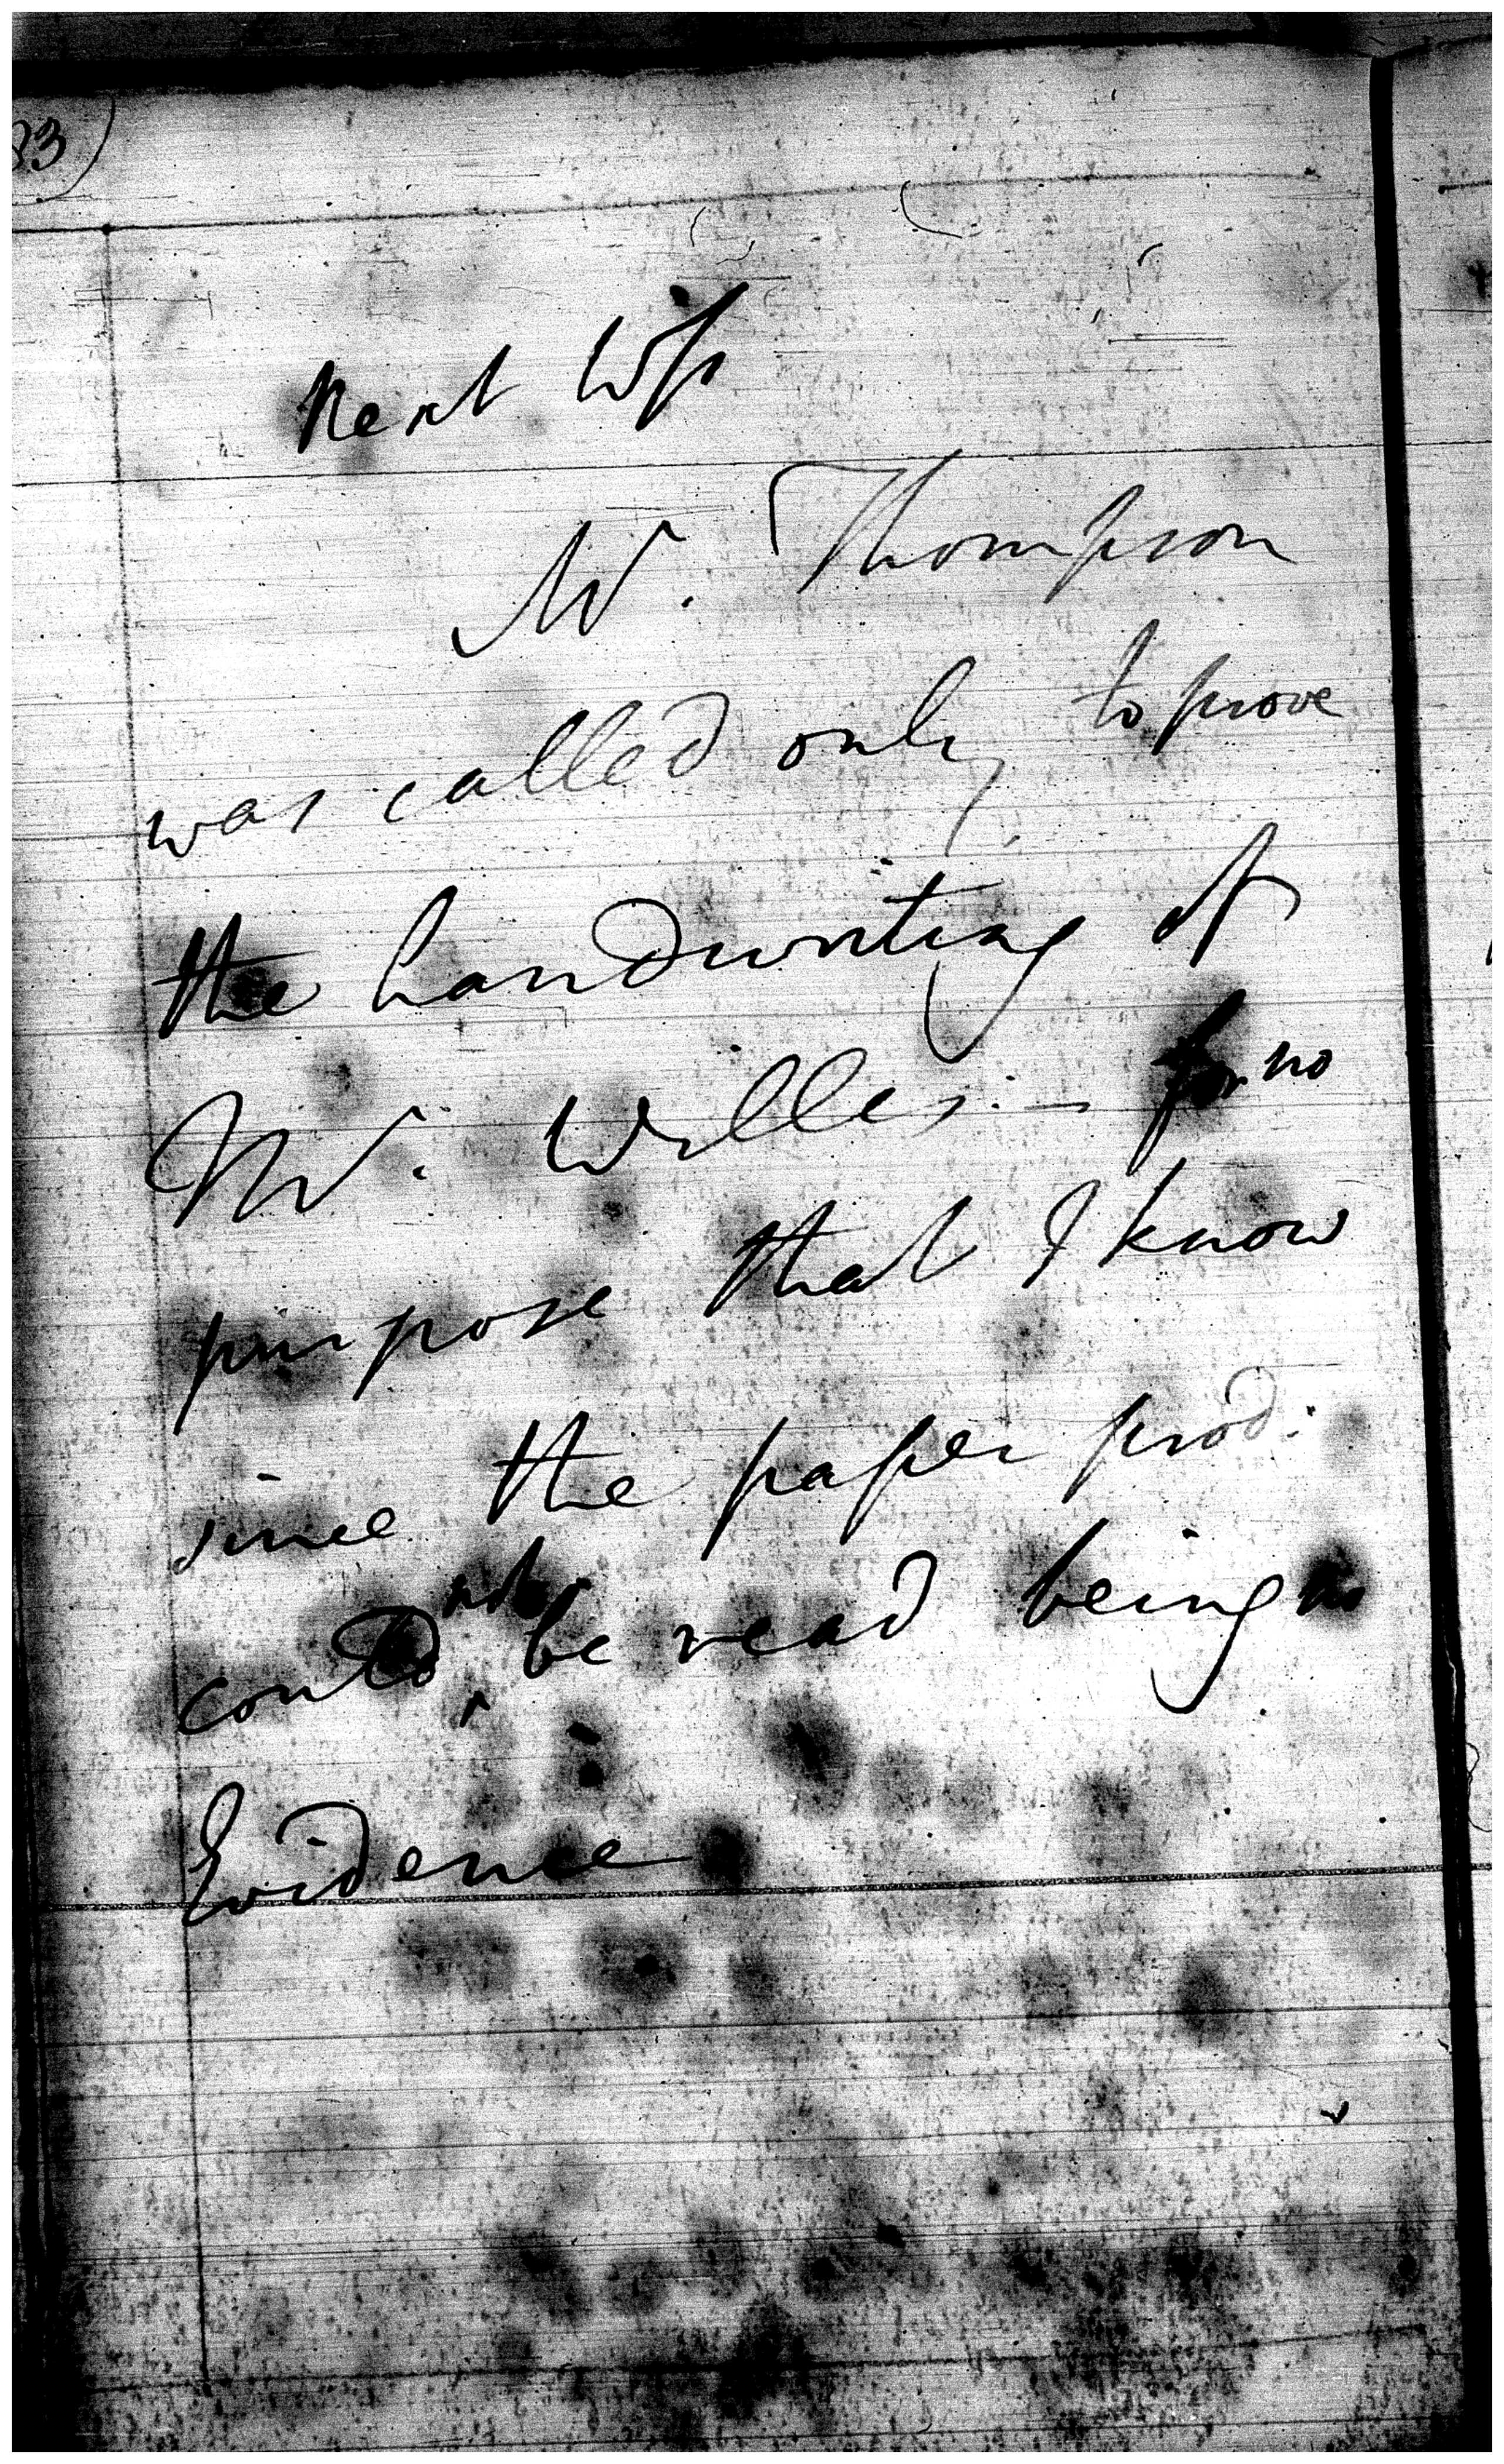 83)
Next Wss
Mr. Thompson
was called only to prove
the handwriting of
Mr. Willes. – for no
purpose that I know
since the paper prod:
could not be read being no
Evidence